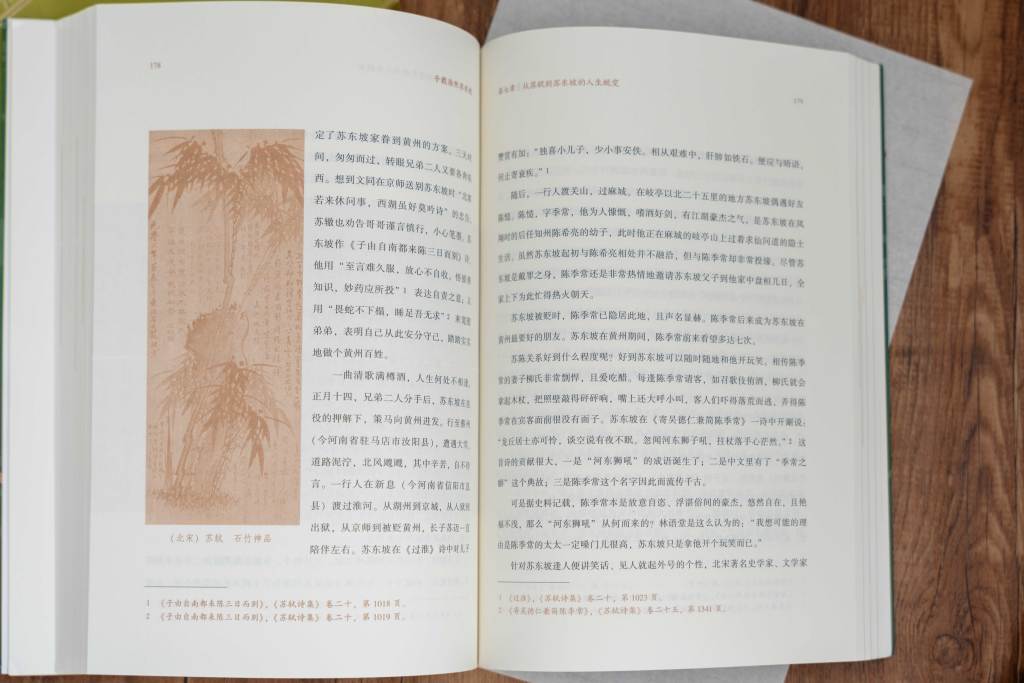 178
定了苏东坡家眷到黄州的方案。三天时
间，匆匆而过，转眼兄弟二人又要各奔东
西。想到文同在京师送别苏东坡时“北客
若来休问事，西湖虽好莫吟诗”的忠告，
苏辙也劝告哥哥谨言慎行，小心笔墨。苏
东坡作《子由自南都来陈三日而别》诗
他用“至言难久服，放心不自收。悟彼善
知识，妙药应所投”1 表达自责之意；又
用“畏蛇不下榻，睡足吾无求”2 来宽慰
弟弟，表明自己从此安分守己，踏踏实实
地做个黄州百姓。
一曲清歌满樽酒，人生何处不相逢。
正月十四，兄弟二人分手后，苏东坡在差
役的押解下，策马向黄州进发。行至蔡州
(今河南省驻马店市汝阳县)，遭遇大雪，
道路泥泞，北风飕飕，其中辛苦，自不待
言。一行人在新息（今河南省信阳市息
县）渡过淮河。从湖州到京城，从入狱到
出狱，从京师到被贬黄州，长子苏迈一直
陪伴左右。苏东坡在《过淮》诗中对儿子
（北宋）苏轼 石竹禅品
1 《子由自南都来陈三日而别》，《苏轼诗集》卷二十，第 1018 页。
2 《子由自南都来陈三日而别》，《苏轼诗集》卷二十，第 1019 页。
第七章｜从苏轼到苏东坡的人生蜕变
179
赞赏有加：“独喜小儿子，少小事安佚。相从艰难中，肝肺如铁石。便应与晤语，
何止寄衰疾。”1
随后，一行人渡关山，过麻城。在岐亭以北二十五里的地方苏东坡偶遇好友
陈慥。陈慥，字季常，他为人慷慨，嗜酒好剑，有江湖豪杰之气，是苏东坡在凤
翔时的后任知州陈希亮的幼子，此时他正在麻城的岐亭山上过着求仙问道的隐士
生活。虽然苏东坡起初与陈希亮相处并不融洽，但与陈季常却非常投缘。尽管苏
东坡是戴罪之身，陈季常还是非常热情地邀请苏东坡父子到他家中盘桓几日，全
家上下为此忙得热火朝天。
苏东坡被贬时，陈季常已隐居此地，且声名显赫。陈季常后来成为苏东坡在
黄州最要好的朋友。苏东坡在黄州期间，陈季常前来看望多达七次。
苏陈关系好到什么程度呢？好到苏东坡可以随时随地和他开玩笑。相传陈季
常的妻子柳氏非常剽悍，且爱吃醋。每逢陈季常请客，如召歌伎侑酒，柳氏就会
拿起木杖，把照壁敲得砰砰响，嘴上还大呼小叫，客人们吓得落荒而逃，弄得陈
季常在宾客面前很没有面子。苏东坡在《寄吴德仁兼简陈季常》一诗中开涮说：
“龙丘居士亦可怜，谈空说有夜不眠。忽闻河东狮子吼，拄杖落手心茫然。”2 这
首诗的贡献很大，一是“河东狮吼”的成语诞生了；二是中文里有了“季常之
癖”这个典故；三是陈季常这个名字因此而流传千古。
可是据史料记载，陈季常本是放意自恣、浮湛俗间的豪杰，悠然自在，且艳
福不浅，那么“河东狮吼”从何而来的？林语堂是这么认为的：“我想可能的理
由是陈季常的太太一定嗓门儿很高，苏东坡只是拿他开个玩笑而已。”
针对苏东坡逢人便讲笑话、见人就起外号的个性，北宋著名史学家、文学家
1 《过淮》，《苏轼诗集》卷二十，第 1023 页。
2 《寄吴德仁兼简陈季常》，《苏轼诗集》卷二十五，第 1341 页。